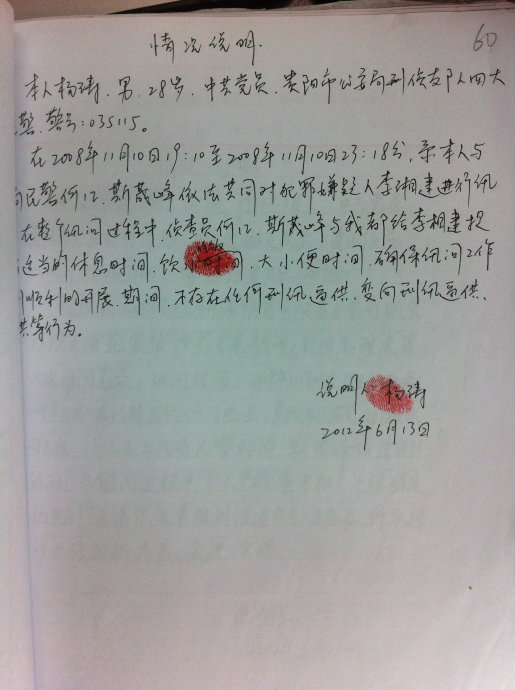 60
情况说明.
本人杨涛,男,28岁,中共党员,贵阳市公安局刑侦支队四大
警,警号:035115。
在2008年11月10日19:10至2008年11月10日23:18分,系本人与
民警何江、斯崴峰依法共同对犯罪嫌疑人李湘建进行讯
在整个讯问过程中,侦查员何江、斯崴峰与我都给李湘建提
适当的休息时间、饮 时间、大小便时间,确保讯问工作
顺利的开展,期间,不存在任何刑讯逼供、变向刑讯逼供、
供等行为。
说明人:杨涛
2012年6月13日